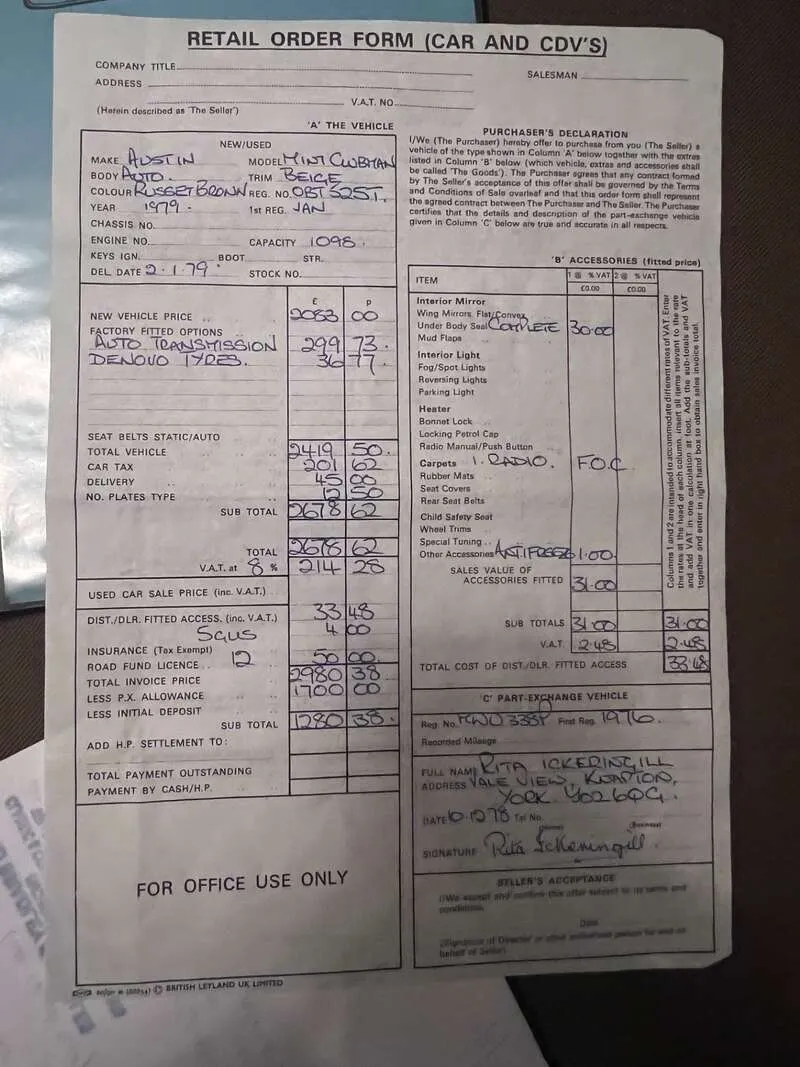 RETAIL ORDER FORM (CAR AND CDV'S)
COMPANY TITLE
SALESMAN
ADDRESS
V.A.T. NO.
(Herein described as 'The Seller')
'A' THE VEHICLE
NEW/USED
MAKE AUSTIN MODEL MINI CLUBMAN
BODY AUTO. TRIM BEIGE
COLOUR RUSSET BROWN REG. NO. OBT 525T.
YEAR 1979. 1st REG. JAN
CHASSIS NO.
ENGINE NO. CAPACITY 1098.
KEYS IGN. BOOT STR.
DEL. DATE 2.1.79. STOCK NO.
£ p
NEW VEHICLE PRICE 2083 00
FACTORY FITTED OPTIONS
AUTO TRANSMISSION 299 73.
DENOVO TYRES. 36 77.
SEAT BELTS STATIC/AUTO
TOTAL VEHICLE 2419 50.
CAR TAX 201 62
DELIVERY 45 00
NO. PLATES TYPE 12 50
SUB TOTAL 2678 62
TOTAL 2678 62
V.A.T. at 8 % 214 28
USED CAR SALE PRICE (inc. V.A.T.)
DIST./DLR. FITTED ACCESS. (inc. V.A.T.) 33 48
5GUS 4 00
INSURANCE (Tax Exempt)
ROAD FUND LICENCE 12 50 00.
TOTAL INVOICE PRICE 2980 38
LESS P.X. ALLOWANCE 1700 00
LESS INITIAL DEPOSIT
SUB TOTAL 1280 38.
ADD H.P. SETTLEMENT TO:
TOTAL PAYMENT OUTSTANDING
PAYMENT BY CASH/H.P.
FOR OFFICE USE ONLY
© BRITISH LEYLAND UK LIMITED
PURCHASER'S DECLARATION
I/We (The Purchaser) hereby offer to purchase from you (The Seller) a
vehicle of the type shown in Column 'A' below together with the extras
listed in Column 'B' below (which vehicle, extras and accessories shall
be called 'The Goods'). The Purchaser agrees that any contract formed
by The Seller's acceptance of this offer shall be governed by the Terms
and Conditions of Sale overleaf and that this order form shall represent
the agreed contract between The Purchaser and The Seller. The Purchaser
certifies that the details and description of the part-exchange vehicle
given in Column 'C' below are true and accurate in all respects.
'B' ACCESSORIES (fitted price)
ITEM 1 @ % VAT 2 @ % VAT
£0.00 £0.00
Interior Mirror
Wing Mirrors, Flat/Convex
Under Body Seal COMPLETE 30.00
Mud Flaps
Interior Light
Fog/Spot Lights
Reversing Lights
Parking Light
Heater
Bonnet Lock
Locking Petrol Cap
Radio Manual/Push Button
Carpets 1. RADIO. F.O.C
Rubber Mats
Seat Covers
Rear Seat Belts
Child Safety Seat
Wheel Trims
Special Tuning
Other Accessories ANTIFREEZE 1.00.
SALES VALUE OF
ACCESSORIES FITTED 31.00
SUB TOTALS 31.00 31.00
V.A.T. 2.48 2.48
TOTAL COST OF DIST./DLR. FITTED ACCESS 33.48
Columns 1 and 2 are intended to accommodate different rates of VAT. Enter
the rates at the head of each column, insert all items relevant to the rate
and add VAT in one calculation at foot. Add the sub-totals and VAT
together and enter in right hand box to obtain sales invoice total.
'C' PART-EXCHANGE VEHICLE
Reg. No. First Reg. 1976.
Recorded Mileage
FULL NAME RITA ICKERINGILL
ADDRESS VALE VIEW, KNAPTON,
YORK. YO2 6QG.
DATE 10.12.78 Tel No.
SIGNATURE Rita Ickeringill.
SELLER'S ACCEPTANCE
I/We accept and confirm this offer subject to its terms and
conditions.
Date
(Signature of Director or other authorised person for and on
behalf of Seller)